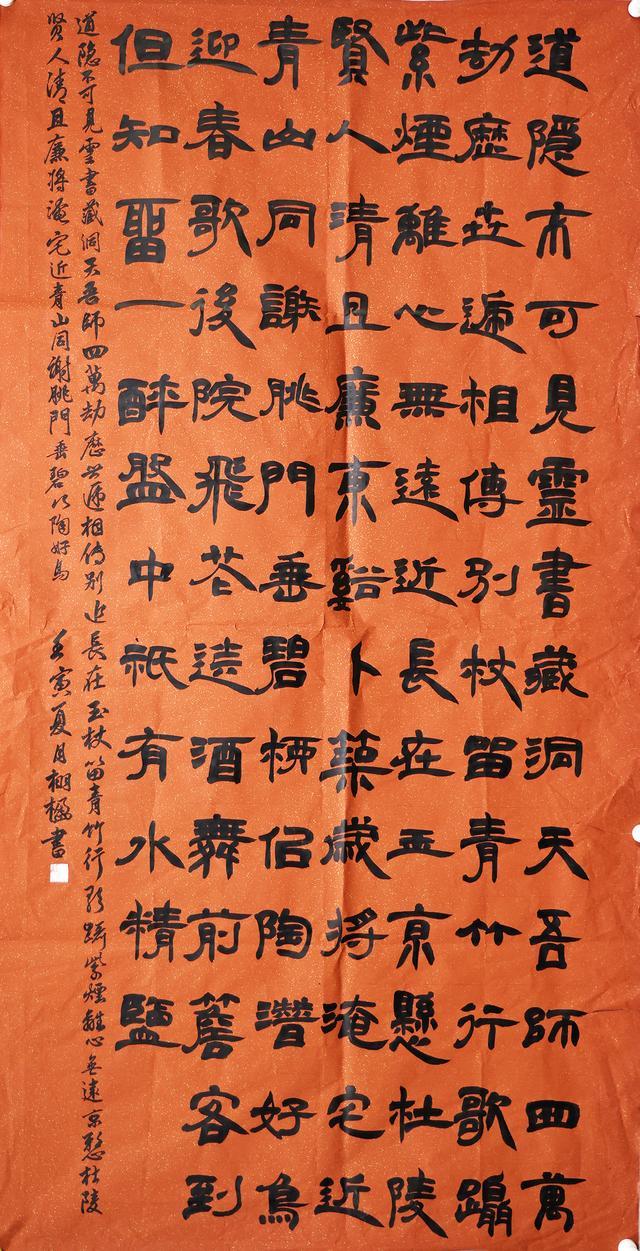 道隱不可見靈書藏洞天吾師四萬
劫歷世遞相傳別杖留青竹行歌躡
紫煙離心無遠近長在玉京懸杜陵
賢人清且廉東谿卜築歲將淹宅近
青山同謝朓門垂碧柳佀陶潛好鳥
迎春歌後院飛花送酒舞前簷客到
但知留一醉盤中祇有水精鹽
道隐不可見靈書藏洞天吾師四萬劫歷世遞相傳别近長在玉杖留青竹行歌躡紫煙離心無遠京杜陵
賢人清且廉將淹宅近青山同謝朓門垂碧陶好鳥 壬寅夏月書